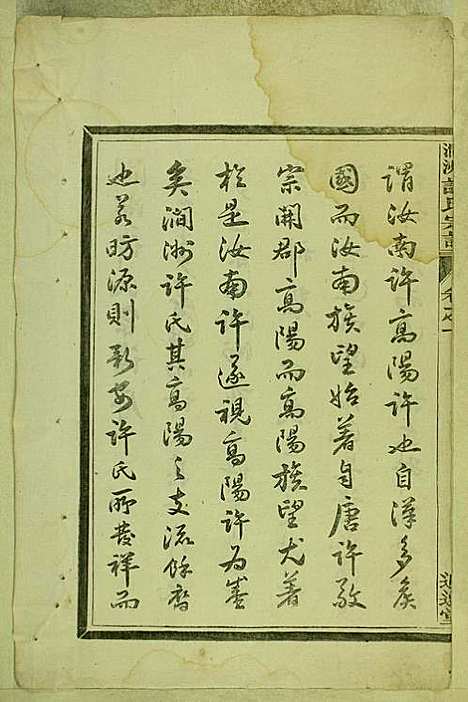 謂汝南許高陽許也自漢多矦
國而汝南族望始著自唐許敬
宗開郡高陽而高陽族望尤著
於是汝南許遂視高陽許為盛
矣澗洲許氏其高陽之支流餘裔
也若昉源則新安許氏所發祥而
許氏宗譜
卷之一
追遠堂